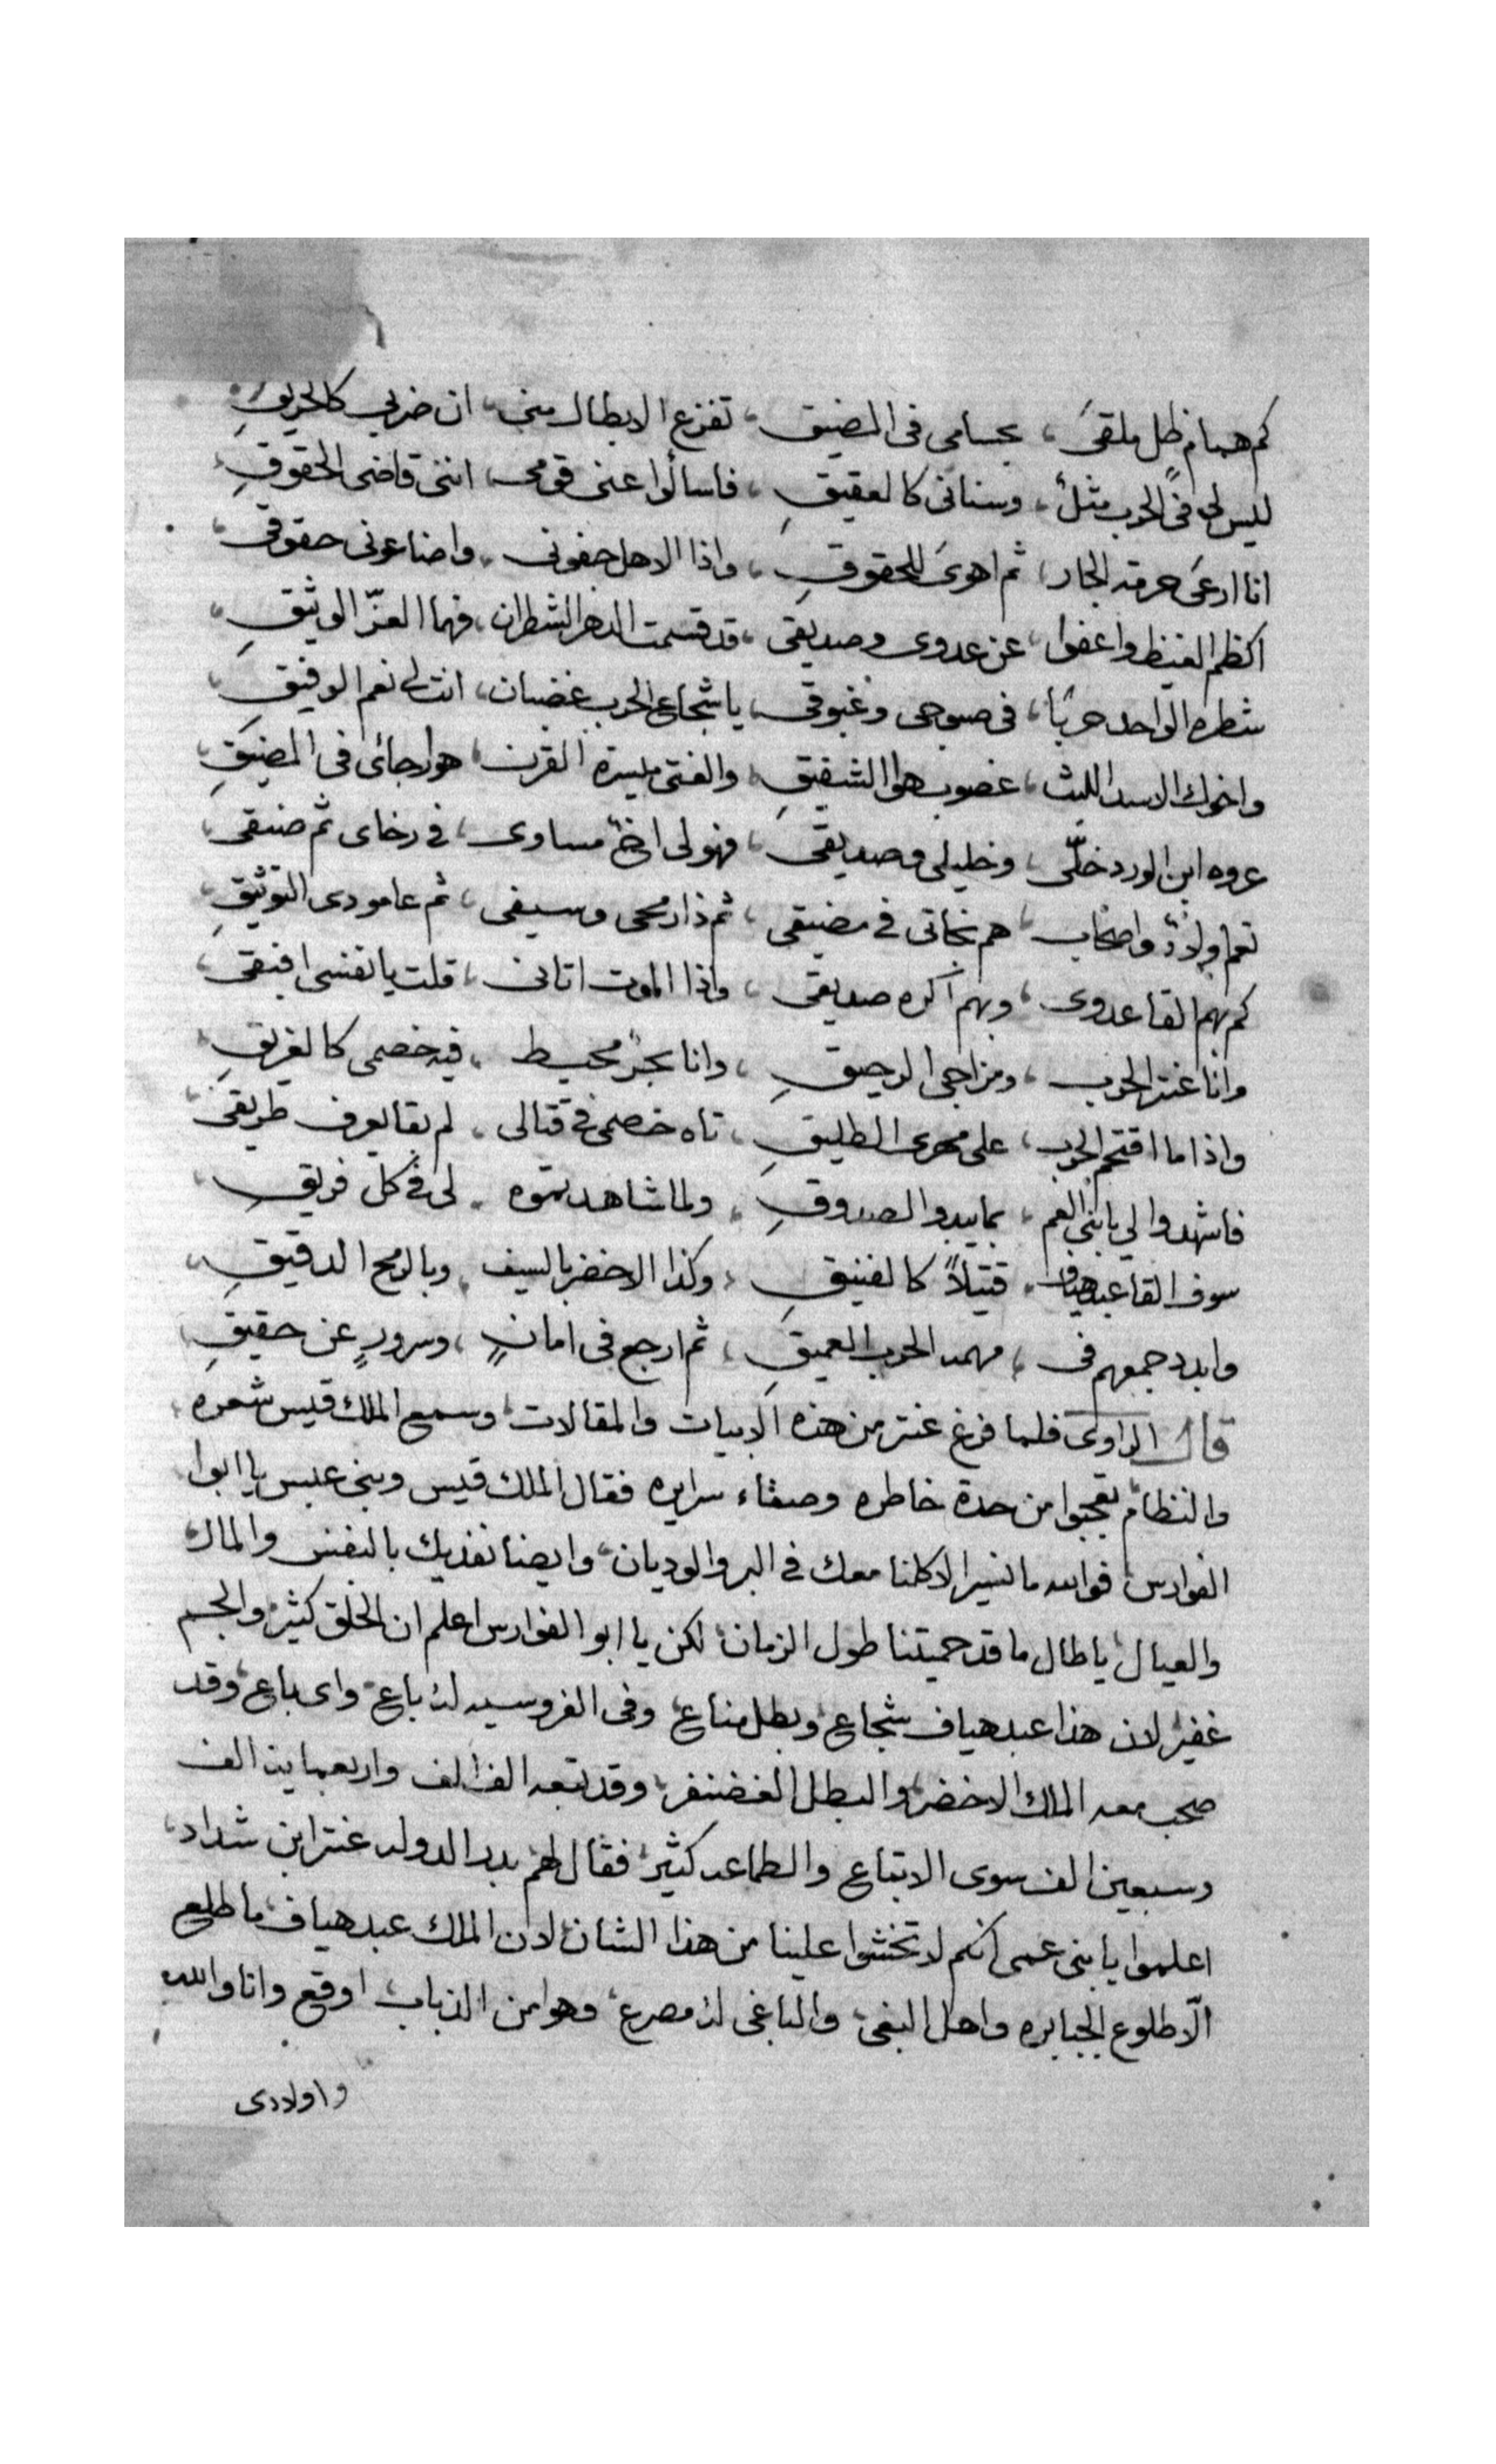 كم همام ظل ملقىً، بحسامى فى المضيق، تفزع الابطال منى، ان ضربى كالحريقِ
ليس لى فى الحرب مثلٌ، وسنانى كالعقيقِ، فاسألوا عنى قومى، اننى قاضى الحقوقِ
انا ارعى حرمة الجار، ثم اهوى للحقوقِ، واذا الاهل جفونى، واضاعونى حقوقى،
اكظم الغيظ واعفوا، عن عدوى وصديقى، قد قسمت الدهر الشطران، فهما العزّ الوثيقِ،
شطره الواحد حربًا، فى صبوحى وغبوقى، ياشجاع الحرب غضبان، انت لى نعم الرفيق،
واخوك الاسد الليث، غصوب هوا الشفيقِ، والفتى ميسرة القرن، هوا رجائى فى المضيقِ،
عروه ابن الورد خلّى، وخليلى وصديقى، فهو لى اخٌ مساوى، فى رخاى ثم ضيقى،
نعم اولادٌ واصحاب، هم نجاتى فى مضيقى، ثم ذا رمحى وسيفى، ثم عامودى التوثيقِ،
كم بهم القا عدوى، وبهم اكره صديقى، واذا الموت اتانى، قلت يا نفسى افيقى،
وانا عنتر الحرب، ومزاجى الرحيقِ، وانا بحرٌ محيط، فيه خصمى كالغريقِ،
واذا ما اقتحم الحرب، على مهرى الطليقِ، تاه خصمى فى قتالى، لم بقا يعرف طريقى،
فاشهدوا لى يا بنى العم، بما يبدو الصدوقِ، ولما شاهدتموه، لى فى كل فريقِ،
سوف القا عبد هياف، قتيلاً كالفنيقِ، وكذا الاخضر بالسيف، وبالرمح الدقيقِ،
وابدد جمعهم فى، مهمه الحرب العميقِ، ثم ارجع فى امانٍ، وسرورٍ عن حقيقِ،
قال الراوى فلما فرغ عنتر من هذه الابيات والمقالات، وسمع الملك قيس شعره،
والنظام، تعجبوا من حدة خاطره وصفاء سرايره فقال الملك قيس وبنى عبس يا ابوا
الفوارس، فوالله ما نسير الا كلنا معك فى البر والوديان، وايضا نفديك بالنفس والمال،
والعيال، ياطال ما قد حميتنا طول الزمان، لكن يا ابو الفوارس اعلم ان الخلق كثير، والجم
غفير، لان هذا عبد هياف شجاع، وبطل مناع، وفى الفروسيه له باع، واى باع، وقد
صحب معه الملك الاخضر، والبطل الغضنفر، وقد تبعه الف الف واربعماية الف
وسبعين الف سوى الاتباع والطماعه كثير، فقال لهم بدر الدوله عنتر ابن شداد،
اعلموا يا بنى عمى انكم لا تخشوا علينا من هذا الشان، لان الملك عبد هياف، ما طلع
الّا طلوع الجبابره واهل البغى، والباغى له مصرع، وهوا من الذباب اوقع وانا والله
واولادى